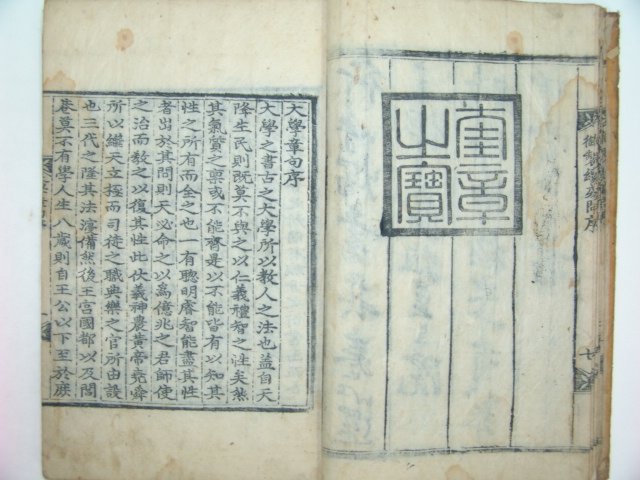 御製
七
奎章
之寶
大學章句序
大學之書古之大學所以教人之法也盖自天
降生民則旣莫不與之以仁義禮智之性矣然
其氣質之稟或不能齊是以不能皆有以知其
性之所有而全之也一有聰明睿智能盡其性
者出於其間則天必命之以爲億兆之君師使
之治而教之以復其性此伏羲神農黃帝堯舜
所以繼天立極而司徒之職典樂之官所由設
也三代之隆其法寖備然後王宮國都以及閭
巷莫不有學人生八歲則自王公以下至於庶